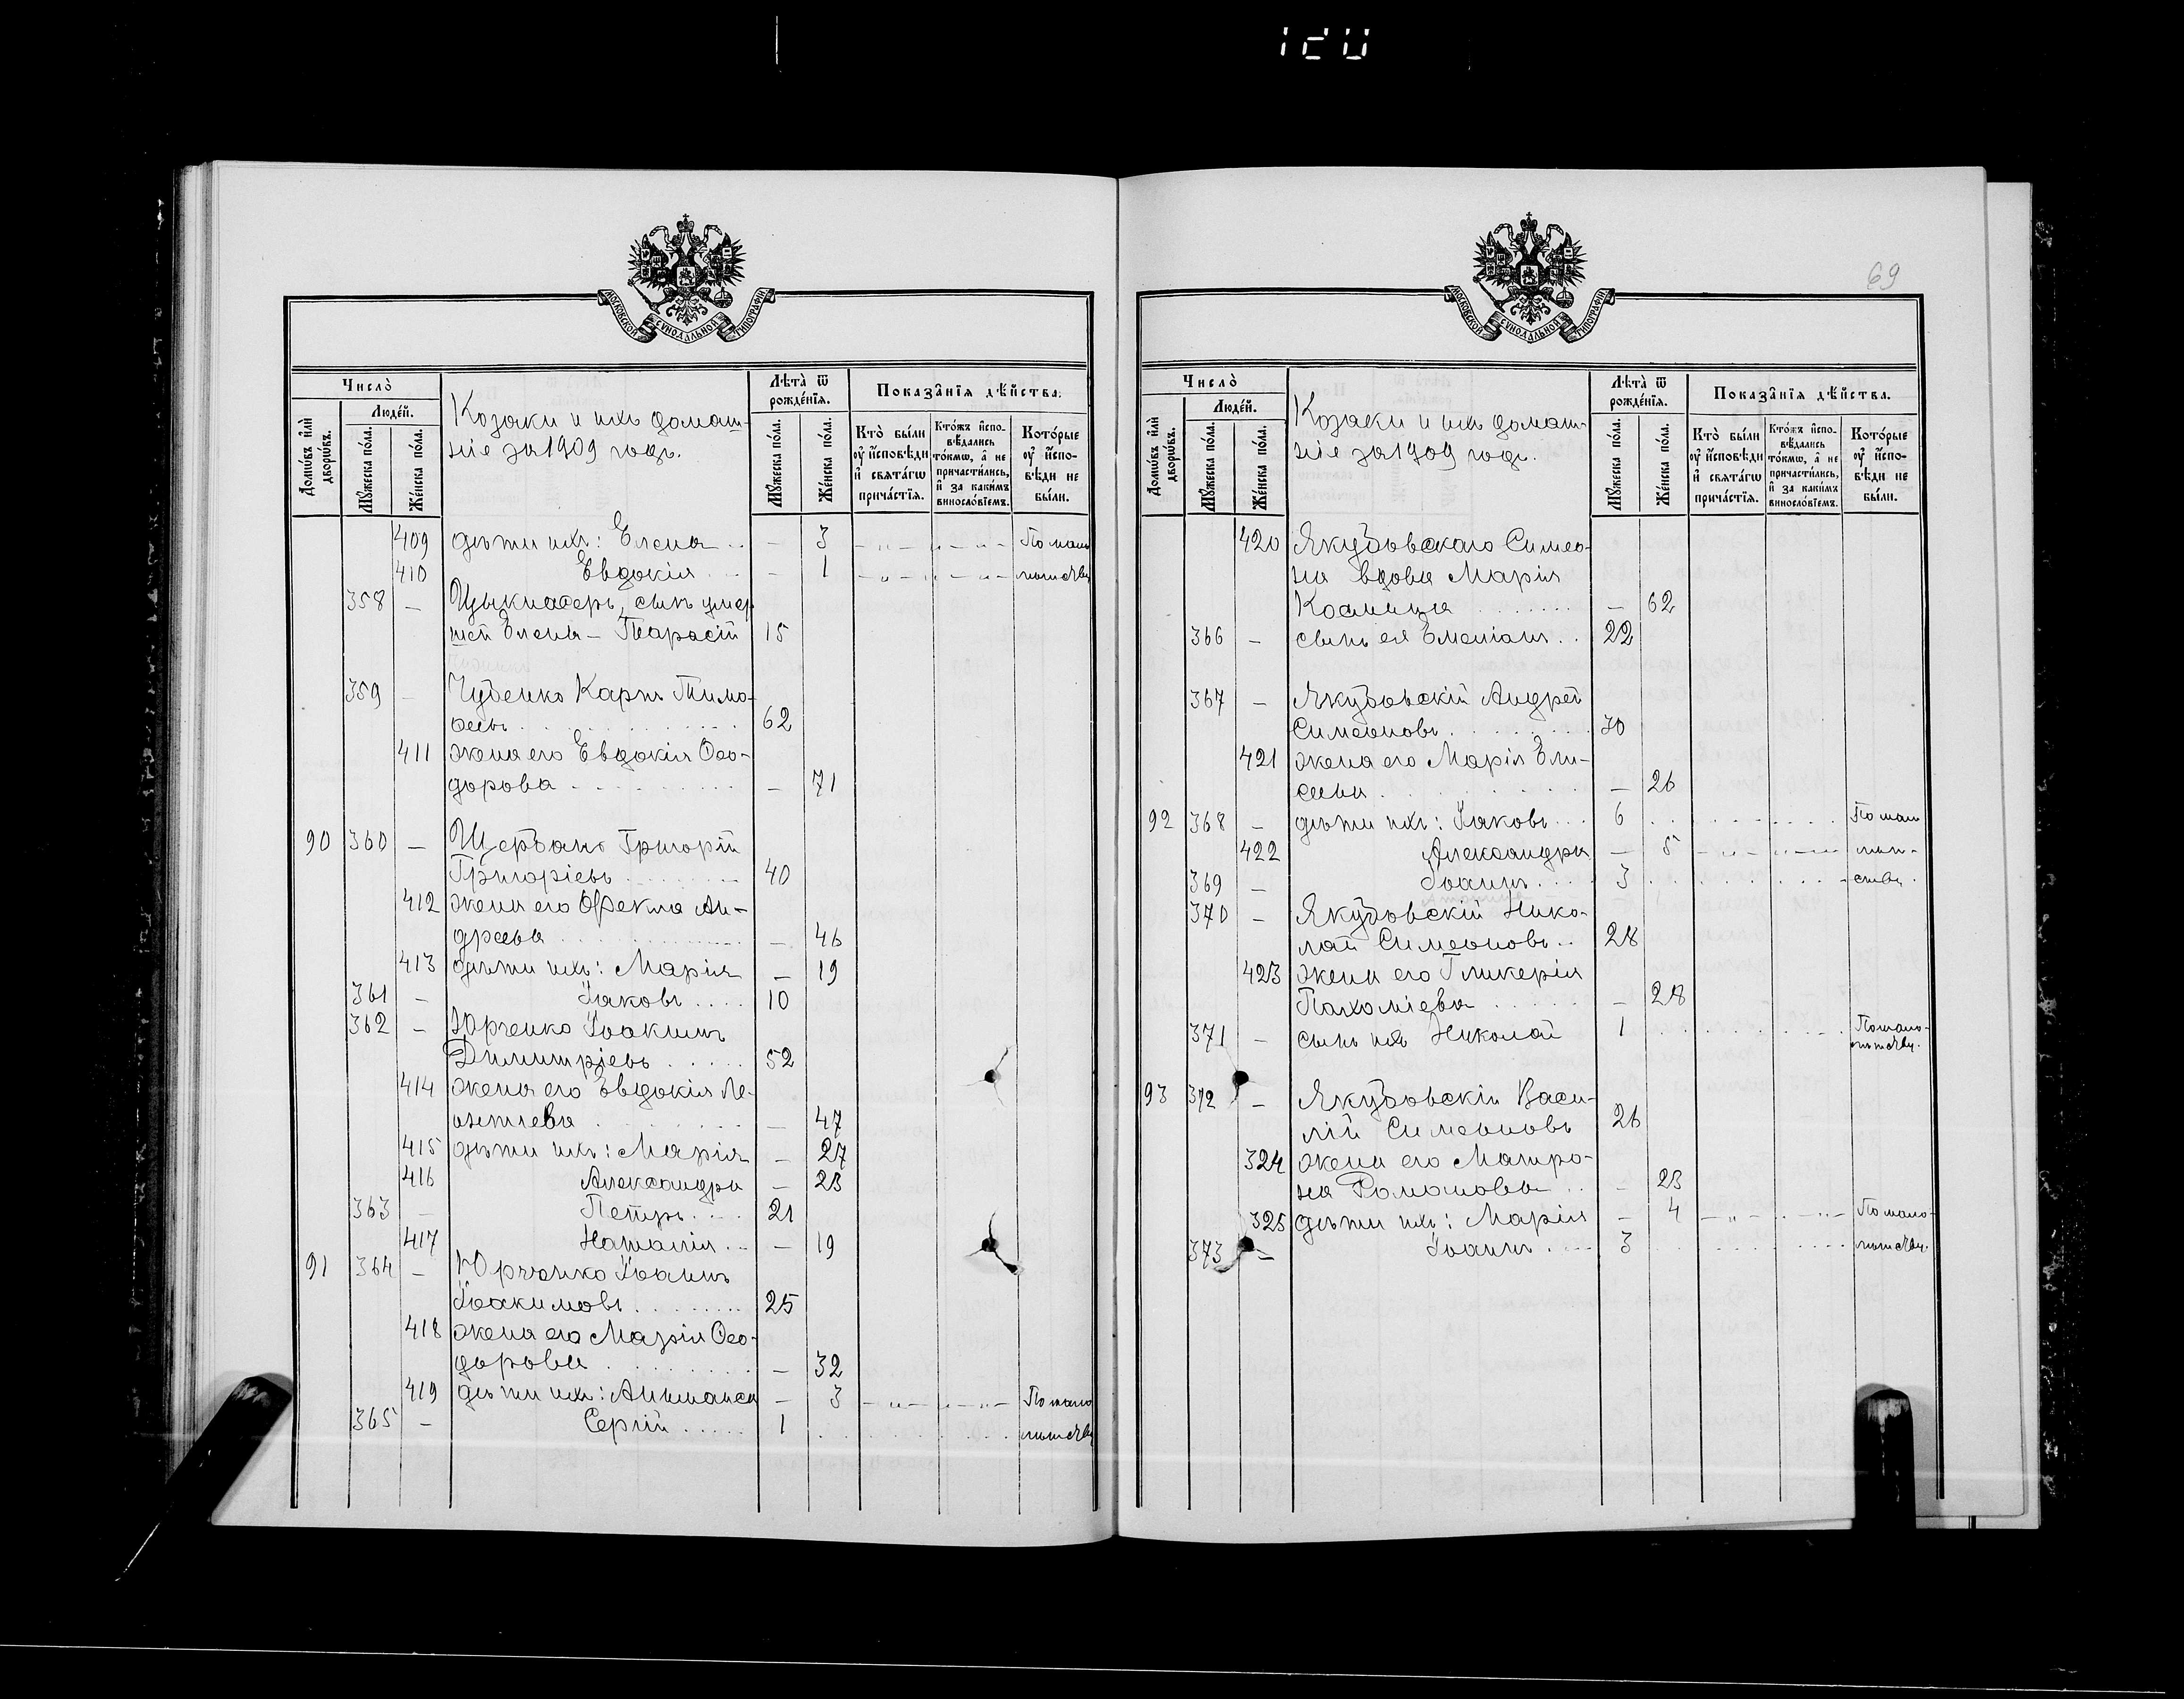 69
МОСКОВСКОЙ СѴНОДАЛЬНОЙ ТИПОГРАФІИ
Число̀
Люде́й.
Домѡ́въ и҆лѝ дворѡ́въ.
Мꙋ́жеска по́ла.
Же́нска по́ла.
Козаки и ихъ домаш-
ніе за 1909 годъ.
Лѣта̀ ѿ рожде́нїѧ.
Мꙋ́жеска по́ла.
Же́нска по́ла.
Показа̑нїѧ дѣ́йства.
Кто̀ бы́ли оу҆ и҆сповѣ́ди и҆ свѧта́гѡ прича́стїѧ.
Кто́жъ и҆спо-вѣ́дались то́кмѡ, а҆ не причасти́лись, и҆ за каки́мъ винослові́емъ.
Кото́рые оу҆ и҆спо-вѣ́ди не бы́ли.
409 дѣти ихъ: Елена .. — 3 — „ — „ — „ — По мало
410 Евдокія — 1 — „ — „ — „ — лѣтству
358 — сынъ умер
шей Елены — Тарасій 15
359 — Чубенко Карпъ Тимо-
ѳеевъ 62
411 жена его Евдокія Ѳео-
дорова — 71
90 360 — Щербань Григорій
Григоріевъ 40
412 жена его Ѳекла Ан-
дреева — 46
413 дѣти ихъ: Марія — 19
361 — Іаковъ .... 10
362 — Юрченко Іоакимъ
Димитріевъ 52
414 жена его Евдокія Ле-
онтіева — 47
415 дѣти ихъ: Марія — 27
416 Александра — 23
363 — Петръ 21
417 Наталія .. — 19
91 364 — Юрченко Іоаннъ
Іоакимовъ 25
418 жена его Марія Ѳео-
дорова — 32
419 дѣти ихъ: Анастасія — 3 — „ — „ — „ — По мало
365 — Сергій ..... 1 лѣтству
МОСКОВСКОЙ СѴНОДАЛЬНОЙ ТИПОГРАФІИ
Число̀
Люде́й.
Домѡ́въ и҆лѝ дворѡ́въ.
Мꙋ́жеска по́ла.
Же́нска по́ла.
Козаки и ихъ домаш-
ніе за 1909 годъ.
Лѣта̀ ѿ рожде́нїѧ.
Мꙋ́жеска по́ла.
Же́нска по́ла.
Показа̑нїѧ дѣ́йства.
Кто̀ бы́ли оу҆ и҆сповѣ́ди и҆ свѧта́гѡ прича́стїѧ.
Кто́жъ и҆спо-вѣ́дались то́кмѡ, а҆ не причасти́лись, и҆ за каки́мъ винослові́емъ.
Кото́рые оу҆ и҆спо-вѣ́ди не бы́ли.
420 Якубовскаго Симео-
на вдова Марія
Космина — 62
366 — сынъ ея Емеліанъ .. 22
367 — Якубовскій Андрей
Симеоновъ 30
421 жена его Марія Ели-
сеева — 26
92 368 — дѣти ихъ: Іаковъ ... 6 По мало
422 Александра — 5 — „ — „ — „ лѣт-
369 — Іоаннъ .... 3 ству.
370 — Якубовскій Нико-
лай Симеоновъ .. 28
423 жена его Гликерія
Пахоміева — 28
371 — сынъ ихъ Николай 1 По мало-
лѣтству.
93 372 — Якубовскій Васи-
лій Симеоновъ 26
324 жена его Матро-
на Романова .. — 23
325 дѣти ихъ: Марія — 4 — „ — „ — По мало-
373 — Іоаннъ .... 3 лѣтству.